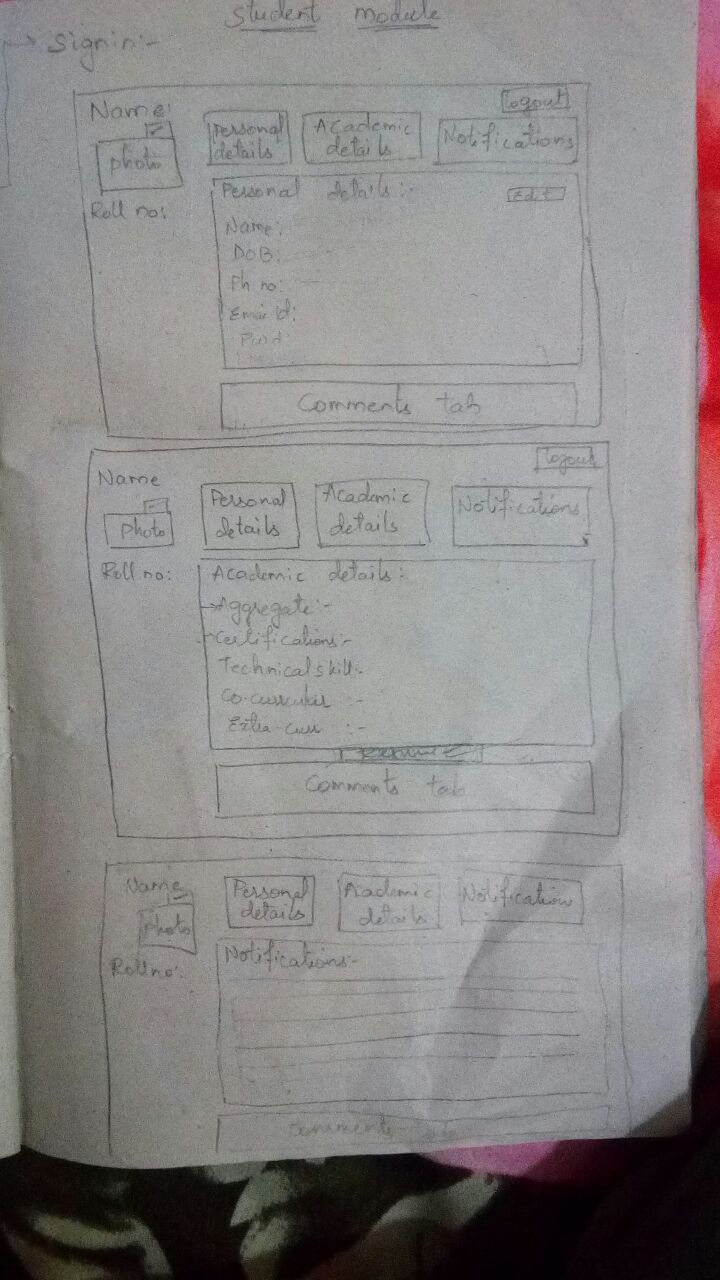 Student Module
→ Signin:-
Name:
logout
Personal details
Academic details
Notifications
photo
Roll no:
Personal details:-
Edit
Name:
DOB:
Ph no:
Email id:
Comments tab
Name
logout
Personal details
Academic details
Notifications
photo
Roll no:
Academic details:
→Aggregate:-
→Certifications:-
Technical skill:-
Co-curricular :-
Extra-curr :-
Comments tab
Name
Personal details
Academic details
Notification
photo
Roll no:
Notifications:-
Comments tab